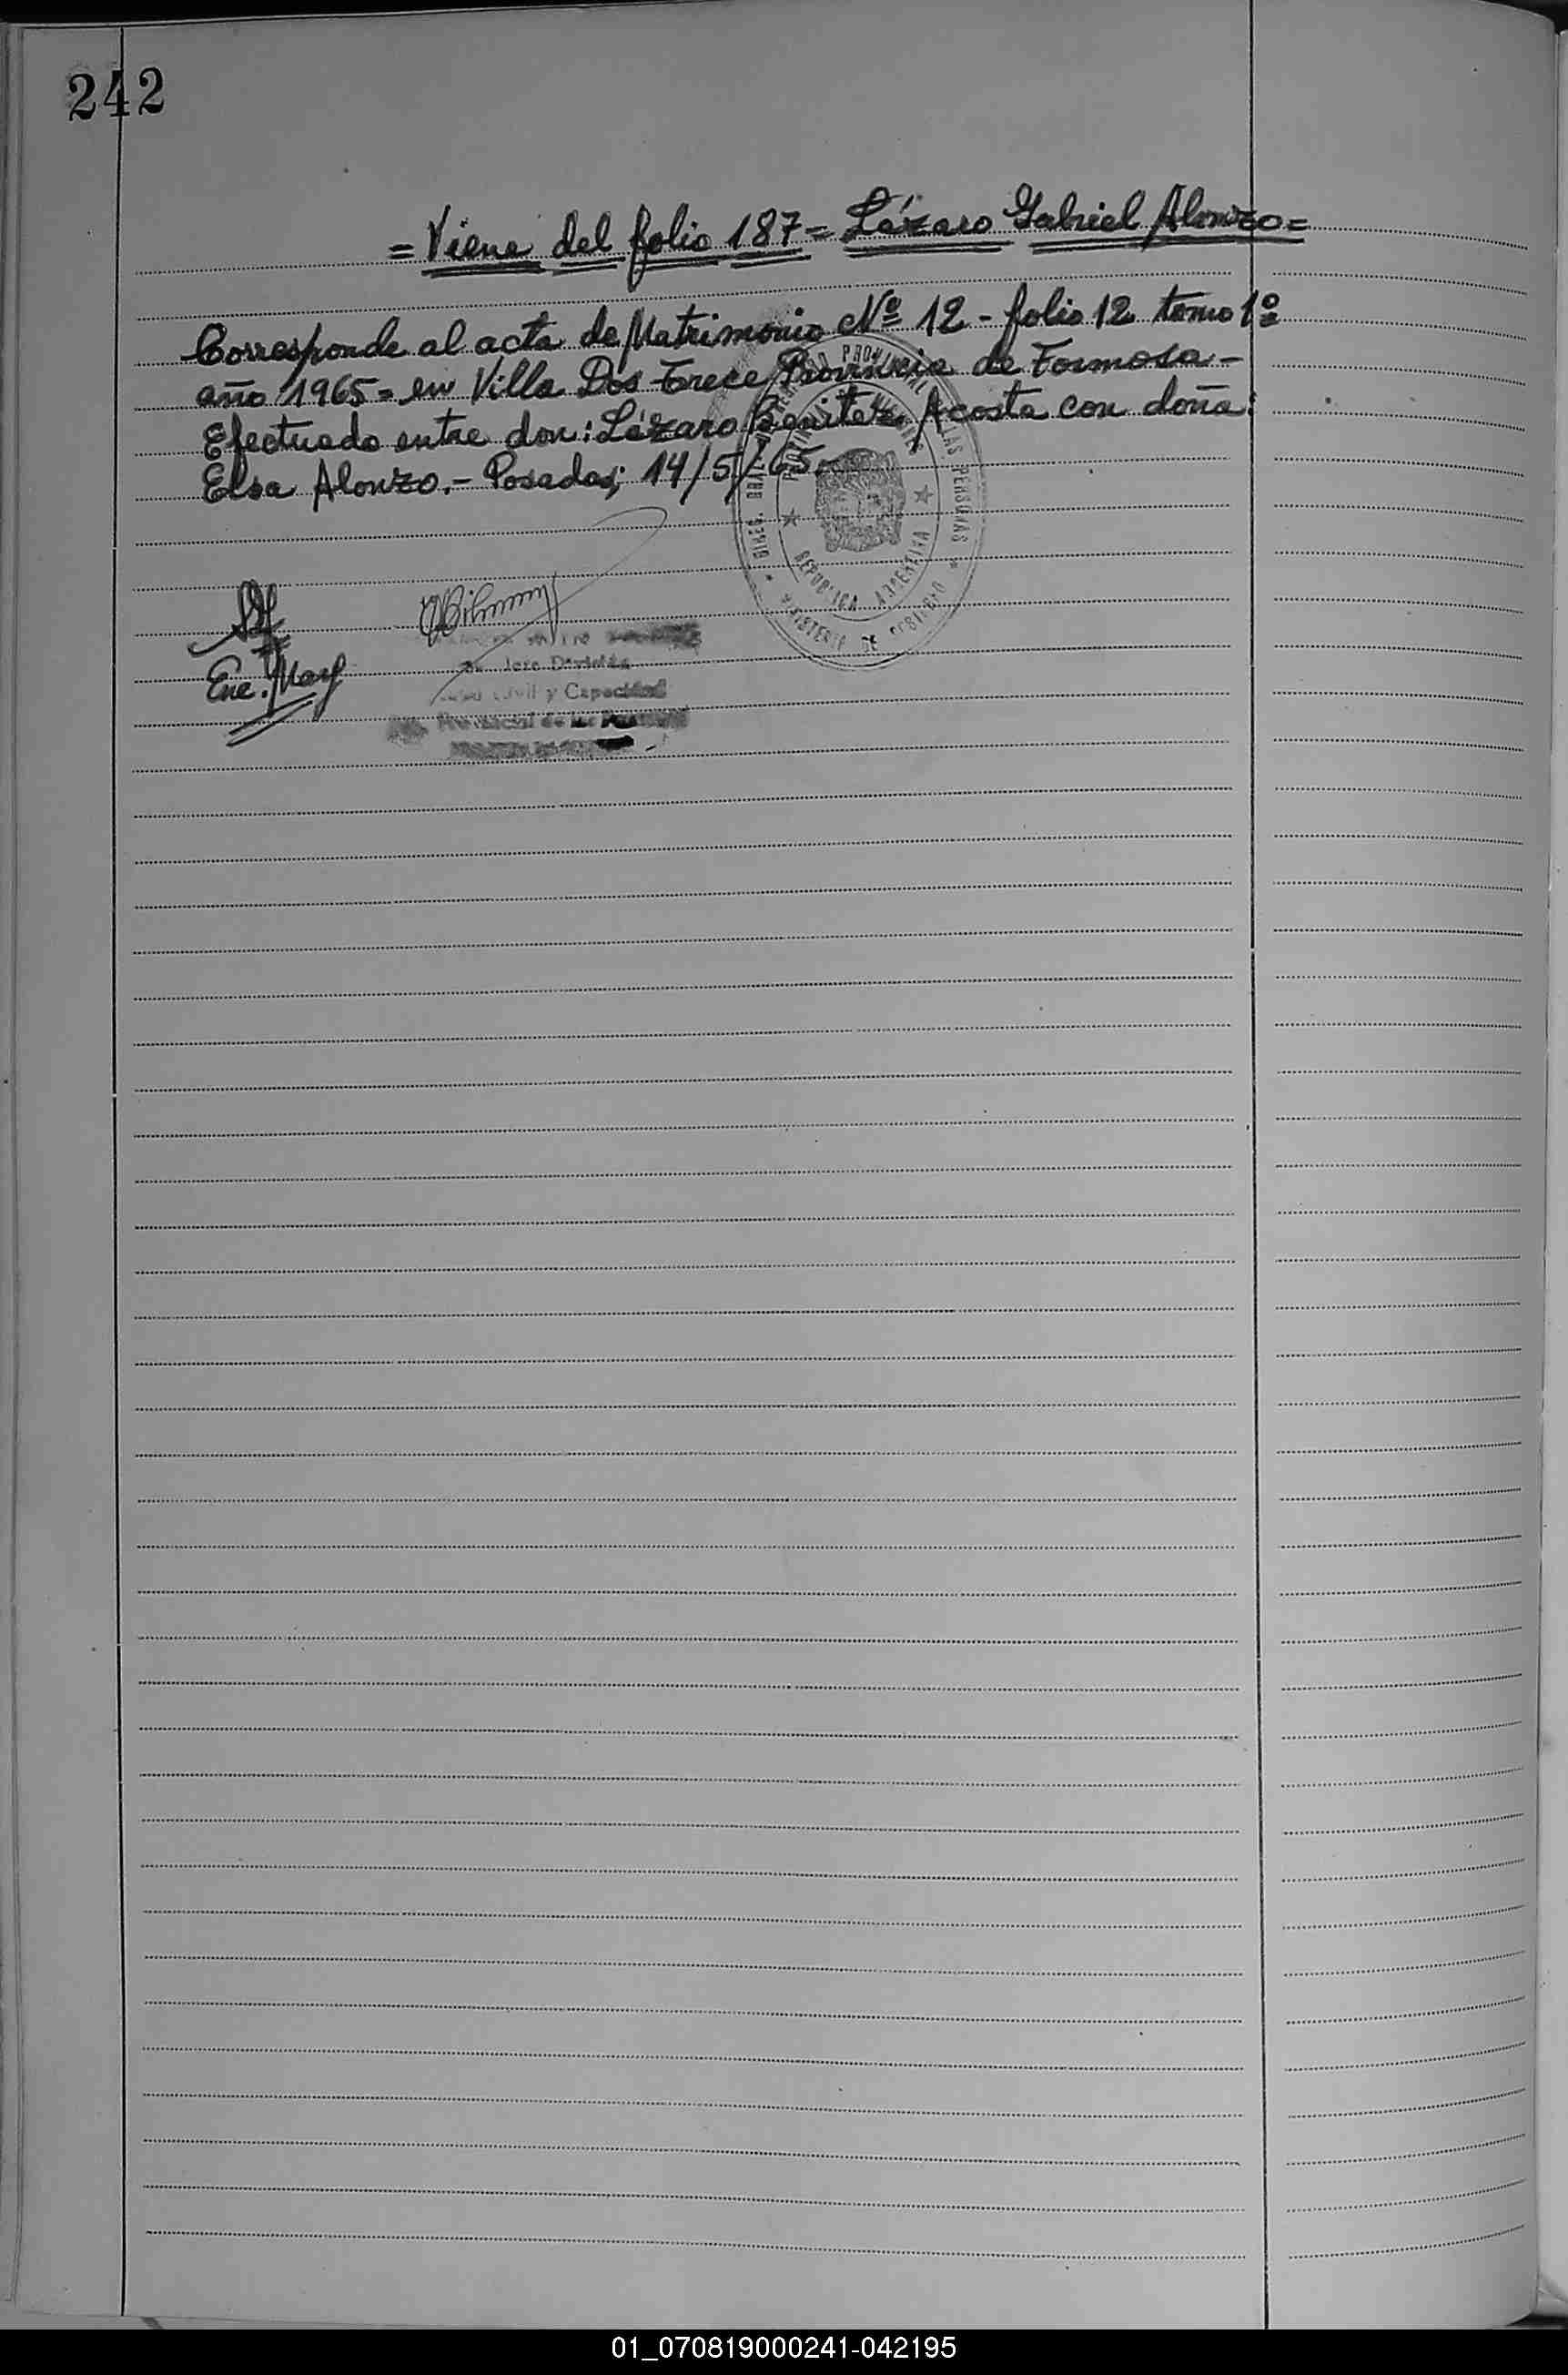 242
= Viene del folio 187 = Lázaro Gabriel Alonzo =
Corresponde al acta de Matrimonio Nº 12 - folio 12 tomo 1º
año 1965 = en Villa Dos Trece Provincia de Formosa -
Efectuado entre don: Lázaro Benitez Acosta con doña:
Elsa Alonzo. - Posadas; 14/5/65.
REGISTRO PROVINCIAL DE LAS PERSONAS
MINISTERIO DE GOBIERNO
REPUBLICA ARGENTINA
Jefe División
Civil y Capacidad
Provincial de las
01_070819000241-042195